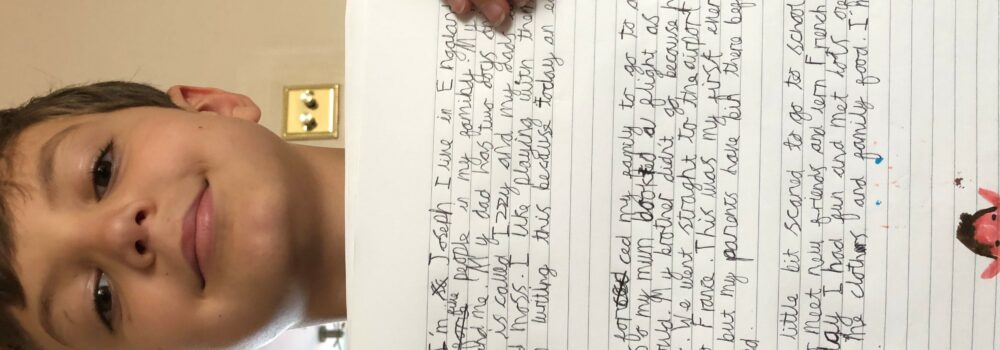 I'm Joseph I live in Engaland
people in my family. My
and me. My dad has two dogs
is called Izzy and my dads
moss. I like playing with them
writing this because today an
my family to go to a
my mum booked a flight as
My brother didnt go because
We went straight to the airport
France. This was my first ever
but my parents have bin there
little bit scared to go to school
meet new friends and lern French
I had fun and met lots
and family food. I'm